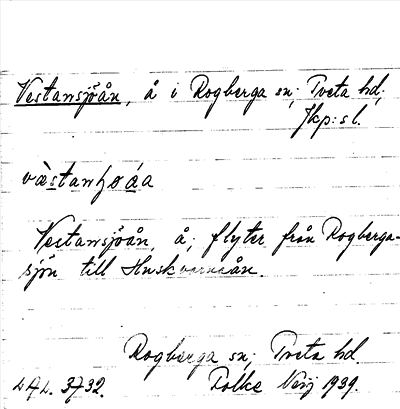 Vestansjöån, å i Rogberga sn; Tveta hd;
Jkp:s l.
västanhoáa
Vestansjöån, å; flyter från Rogberga-
sjön till Huskvarnaån.
Rogberga sn; Tveta hd.
L.A.L. 3732. Folke 1939.